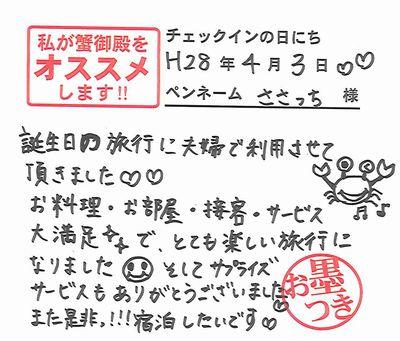 私が蟹御殿を
オススメ
します!!
チェックインの日にち
H28年4月3日♡♡
ペンネーム ささっち 様
誕生日の旅行に夫婦で利用させて
頂きました♡♡
お料理・お部屋・接客・サービス
大満足で、とても楽しい旅行に
なりました そしてサプライズ
サービスもありがとうございました
また是非。!!!宿泊したいです♡
お墨つき